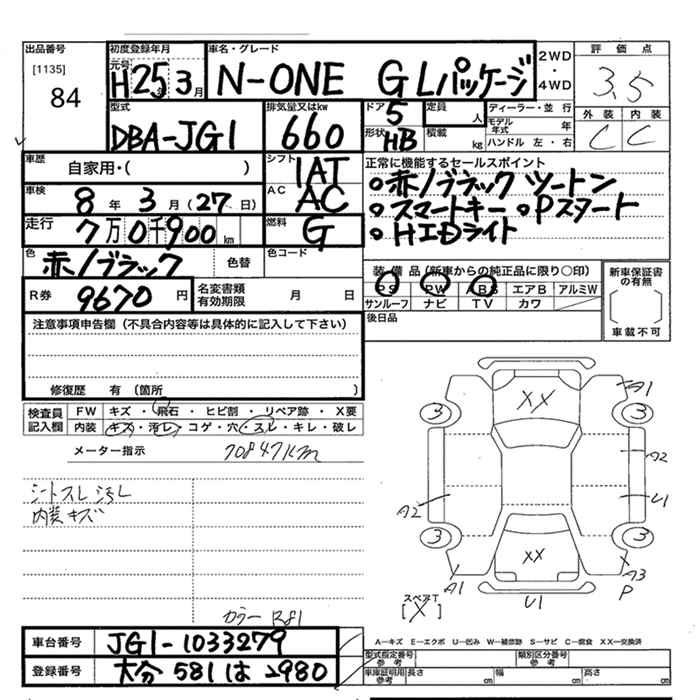 出品番号
[1135]
84
初度登録年月
元号 H25年3月
車名・グレード
N-ONE G Lパッケージ
2WD
・
4WD
評価点
3.5
外装 内装
C C
型式
DBA-JG1
排気量又はkw
660
ドア
5
形状
HB
定員
人
積載
kg
ディーラー・並行
モデル年式 年
ハンドル 左・右
車歴
自家用・( )
シフト
1AT
AC
AC
車検
8年3月(27日)
走行
7万0千900km
燃料
G
色
赤/ブラック
色替
色コード
R券
9670円
名変書類有効期限 月 日
正常に機能するセールスポイント
○赤/ブラック ツートン
○スマートキー ○Pスタート
○HIDライト
装備品(新車からの純正品に限り○印)
PS PW ABS エアB アルミW
サンルーフ ナビ TV カワ
後日品
新車保証書の有無
[ ]
車載不可
注意事項申告欄(不具合内容等は具体的に記入して下さい)
修復歴 有(箇所 )
検査員記入欄
FW キズ・飛石・ヒビ割・リペア跡・X要
内装 キズ・汚レ・コゲ・穴・スレ・キレ・破レ
メーター指示 70847km
シートスレ 汚レ
内装キズ
カラー R81
XX
A1
3 3
A2
A2 U1
3 3
XX
A1 U1 A3
P
スペアT
[X]
A-キズ E-エクボ U-凹み W-補修跡 S-サビ C-腐食 XX-交換済
車台番号 JG1-1033279
登録番号 大分 581 は 2980
型式指定番号 参考
類別区分番号 参考
車庫証明用 参考 長さ cm 幅 cm 高さ cm